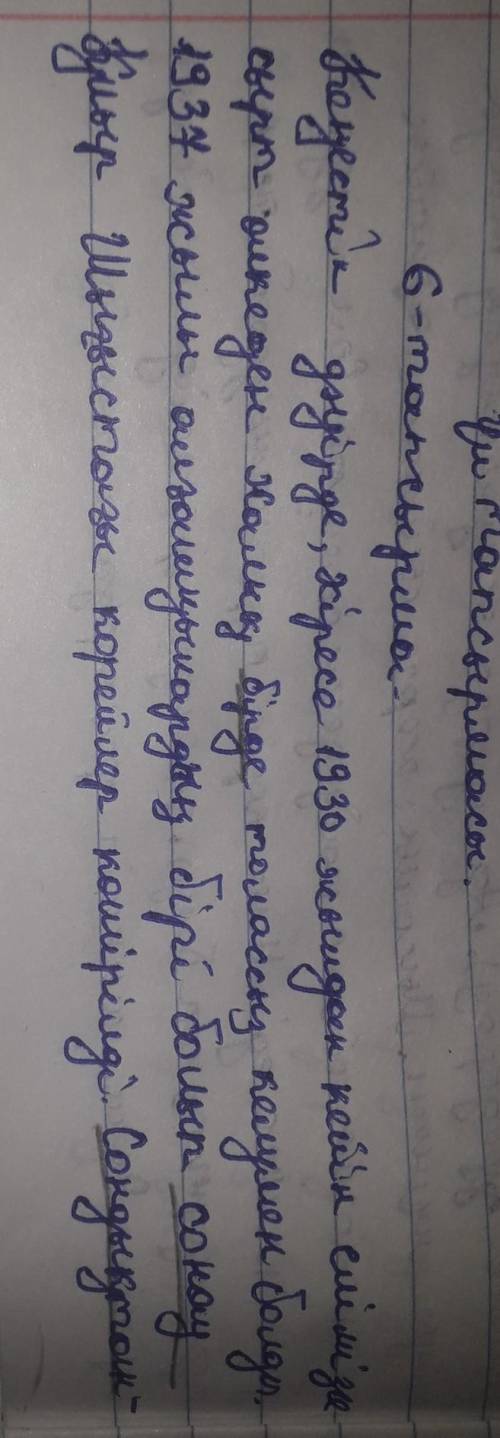 Үй тапсырмасы.
6-тапсырма.
Кеңестік дәуірде, әсіресе 1930 жылдан кейін елімізге
сырт өлкеден халық бірде толассыз келумен болды.
1937 жылы алғашқылардың бірі болып сонау
Қиыр Шығыстағы корейлер көшірілді. Сондықтан-